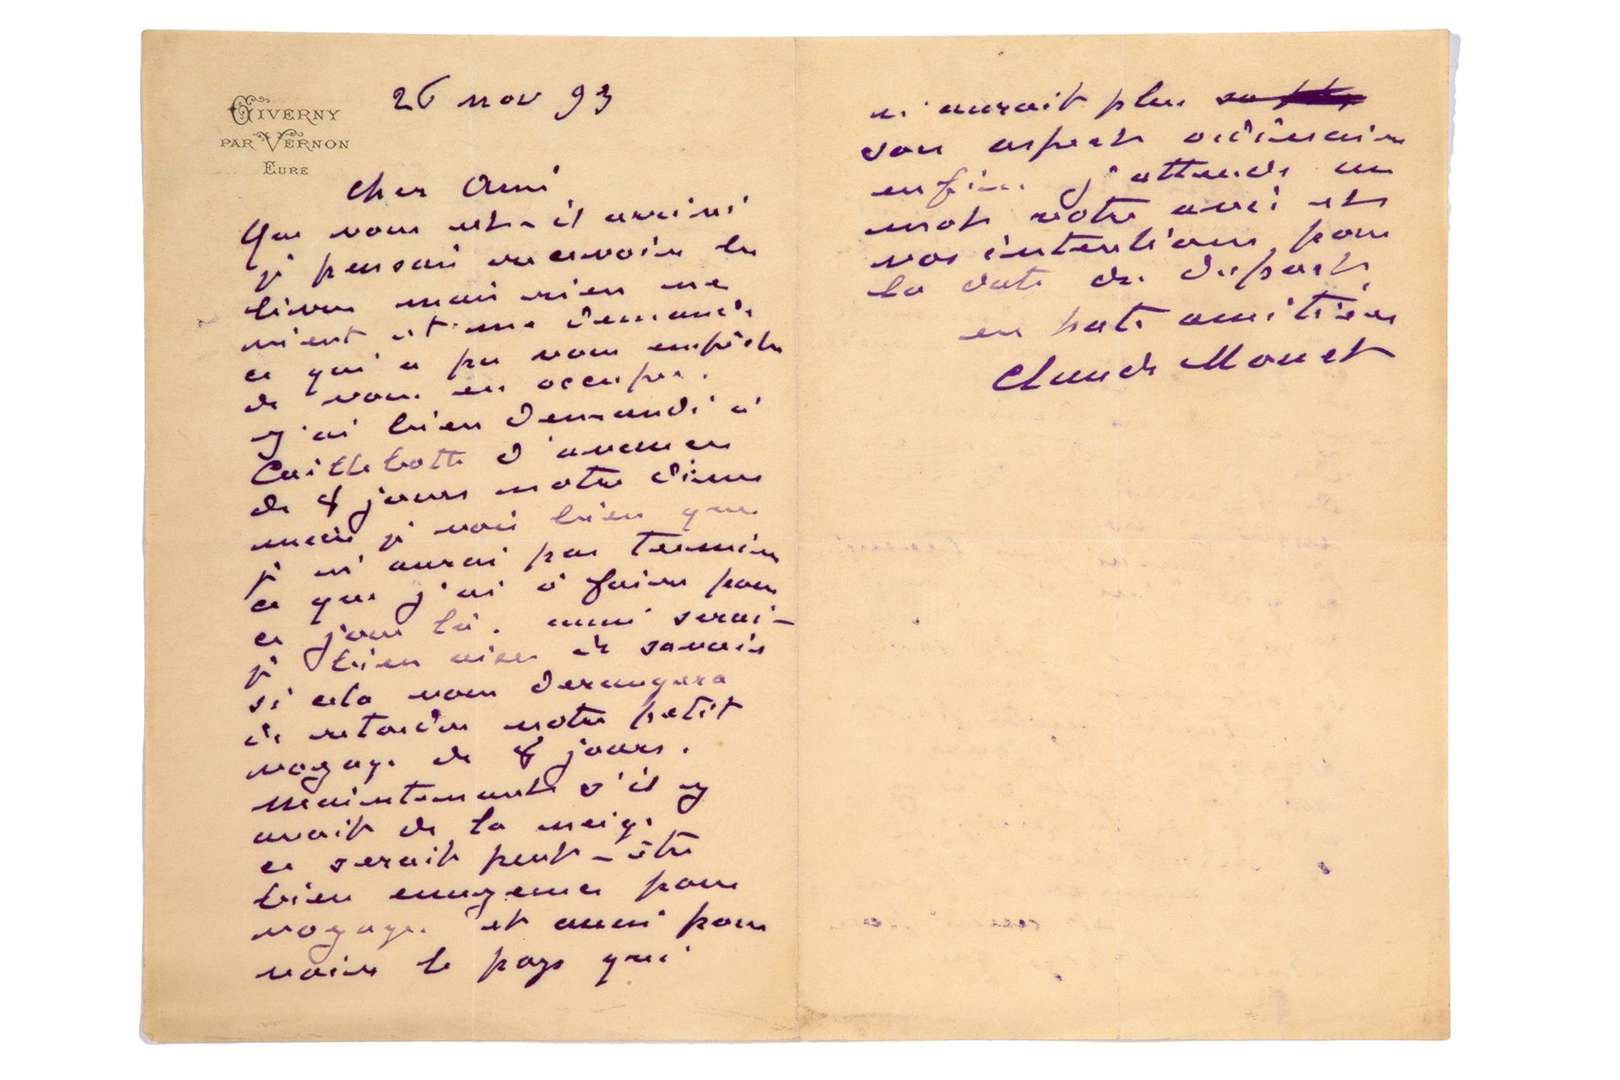 GIVERNY
PAR VERNON
EURE
26 nov 93
cher Ami
Que vous est-il arrivé
je pensais recevoir les
livres mais rien ne
vient et me demande
ce qui a pu vous empêcher
de vous en occuper.
j'ai bien demandé à
Caillebotte d'avancer
de 8 jours notre diner
mais je vois bien que
je n'aurai pas terminé
ce que j'ai à faire pour
ce jour là. aussi serai-
je bien aise de savoir
si cela vous derangera
de retarder notre petit
voyage de 8 jours.
maintenant s'il y
avait de la neige
ce serait peut-être
bien ennuyeux pour
voyager et aussi pour
voir le pays qui
n'aurait plus
son aspect ordinaire
enfin j'attends un
mot votre avis et
vos intentions pour
la date du départ
en hate amitiés
Claude Monet